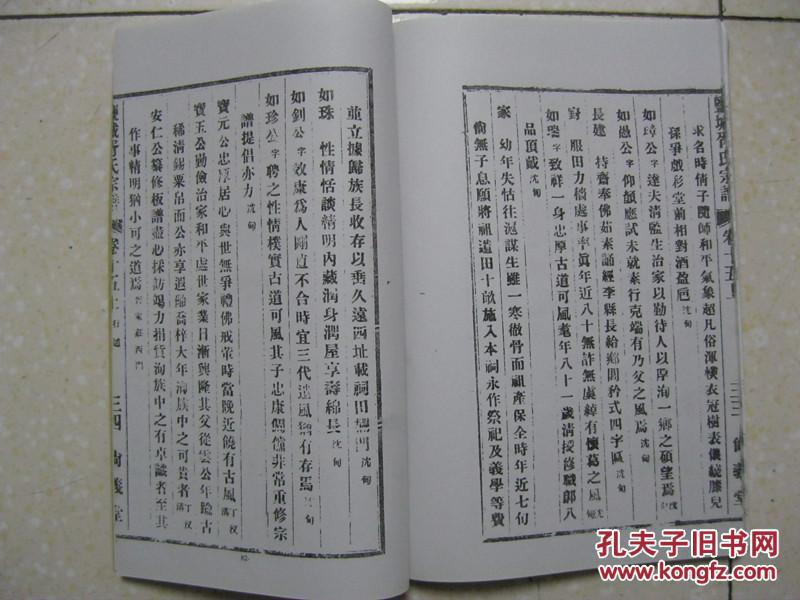 鹽城胥氏宗譜 卷十五上 三三 尚義堂
求名時倩子閱師和平氣象超凡俗渾樸衣冠樹表儀繞膝兒
孫爭戲彩堂前相對酒盈巵 沈甸
如璋公 字達夫清監生治家以勤待人以厚洵一鄉之碩望焉 沈甸
如愚公 字仰顏應試未就素行克端有乃父之風焉 沈甸
長建 持齋奉佛茹素誦經李縣長給鄉閭矜式四字匾 沈甸
對 服田力穡處事率眞年近八十無詐無虞綽有懷葛之風 沈甸
如瑞 字致祥一身忠厚古道可風耄年八十一歲清授修職郎八
品頂戴 沈甸
家 幼年失怙往滬謀生雖一寒徹骨而祖產保全時年近七旬
尙無子息願將祖遺田十畝施入本祠永作祭祀及義學等費
並立據歸族長收存以垂久遠西址載祠田 門 沈甸
如珠 性情恬談精明內藏潤身潤屋享壽綿長 沈甸
如釗公 字效康爲人剛直不合時宜三代遺風猶有存焉 沈甸
如珍公 字聘之性情樸實古道可風其子忠康倜儻非常重修宗
譜提倡亦力 沈甸
寶元公忠厚居心與世無爭禮佛戒葷時當晚近饒有古風 丁汉
寶玉公勤儉治家和平處世家業日漸興隆其父從雲公年踰古
稀清錫粟帛而公亦享遐齡喬梓大年洵族中之可貴者 丁汉
安仁公纂修板譜盡心採訪竭力捐貲洵族中之有卓識者至其
作事精明猶小可之道焉 胥家莊西門
鹽城胥氏宗譜 卷十五上 行述 三四 尚義堂
82
孔夫子旧书网
www.kongfz.com